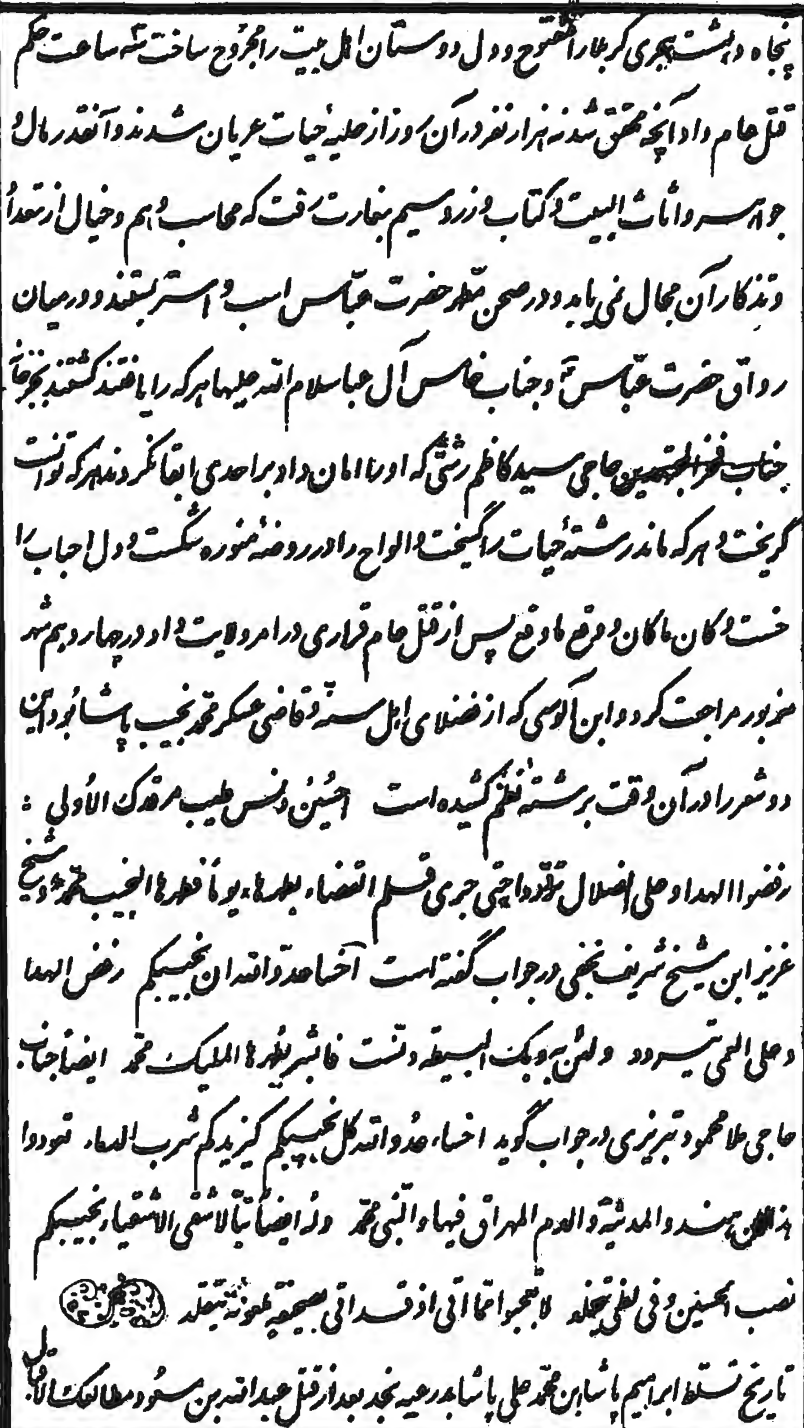 پنجاه و هشت هجری کربلا را مفتوح و دل دوستان اهل بیت را مجروح ساخت سه ساعت حکم
قتل عام داد آنچه محقق شد نه هزار نفر در آن روز از حلیهٔ حیات عریان شدند و آنقدر مال و
جواهر و اثاث البیت و کتاب و زر و سیم بغارت رفت که محاسب وهم و خیال از تعداد
و تذکار آن مجال نمی یابد و در صحن مطهر حضرت عباس اسب و استر بستند و در میان
رواق حضرت عباس و جناب خامس آل عبا سلام الله علیهما هر که را یافتند کشتند بجز خانهٔ
جناب فخر المجتهدین حاجی سید کاظم رشتی که او را امان داد بر احدی ابقا نکردند هر که توانست
گریخت و هر که ماند رشتهٔ حیات را گسیخت و الواح را در روضهٔ منوره شکست و دل احباب را
خست و کان ما کان و وقع ما وقع پس از قتل عام قراری در امر ولایت داد و در چهاردهم شهر
مزبور مراجعت کرد و ابن آلوسی که از فضلای اهل سنة و قاضی عسکر محمد نجیب پاشا بود این
دو شعر را در آن وقت برشتهٔ نظم کشیده است احسین دنس طیب مرقدک الأولی :
رفضوا الهدا و علی الضلال تردوا حتی جری قلم القضاء بطهرها یوماً فطهرها النجیب محمد و شیخ
عزیز ابن شیخ شریف نجفی در جواب گفته است اخسأ عدو الله ان نجیبکم رفض الهدا
و علی العمی یتردد ولئن به وبک البسیطة دنست فابشر یطهرها الملیک محمد ایضاً جناب
حاجی ملا محمود تبریزی در جواب گوید اخساء عدو الله کل نجیبکم کیزیدکم شرب الدماء تعودوا
هند والمدینة والدم المهراق فیها والنبی محمد وله ایضاً تباً لأشقی الأشقیاء نجیبکم
نصب الحسین وفی لظی یتخلد لا تعجبوا مما اتی اذ قد اتی بصحیفة ملعونة یتقلد
تاریخ تسلط ابراهیم پاشا بن محمد علی پاشا بدرعیه نجد بعد از قتل عبدالله بن سعود مطالعک الاقبال